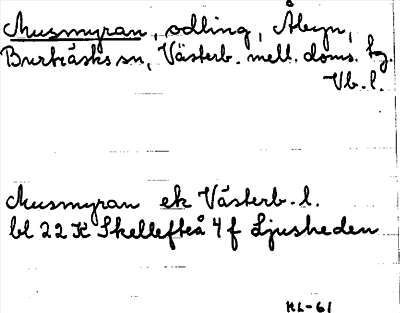 Musmyran, odling, Åbyn,
Burträsks sn, Västerb. mell. doms. tg.
Vb. l.
Musmyran ek Västerb. l.
bl 22 K Skellefteå 4 f Ljusheden
KL-61